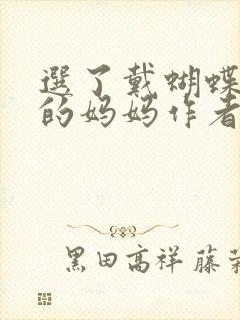 選了戴蝴蝶
的妈妈作者
黑田高祥 藤